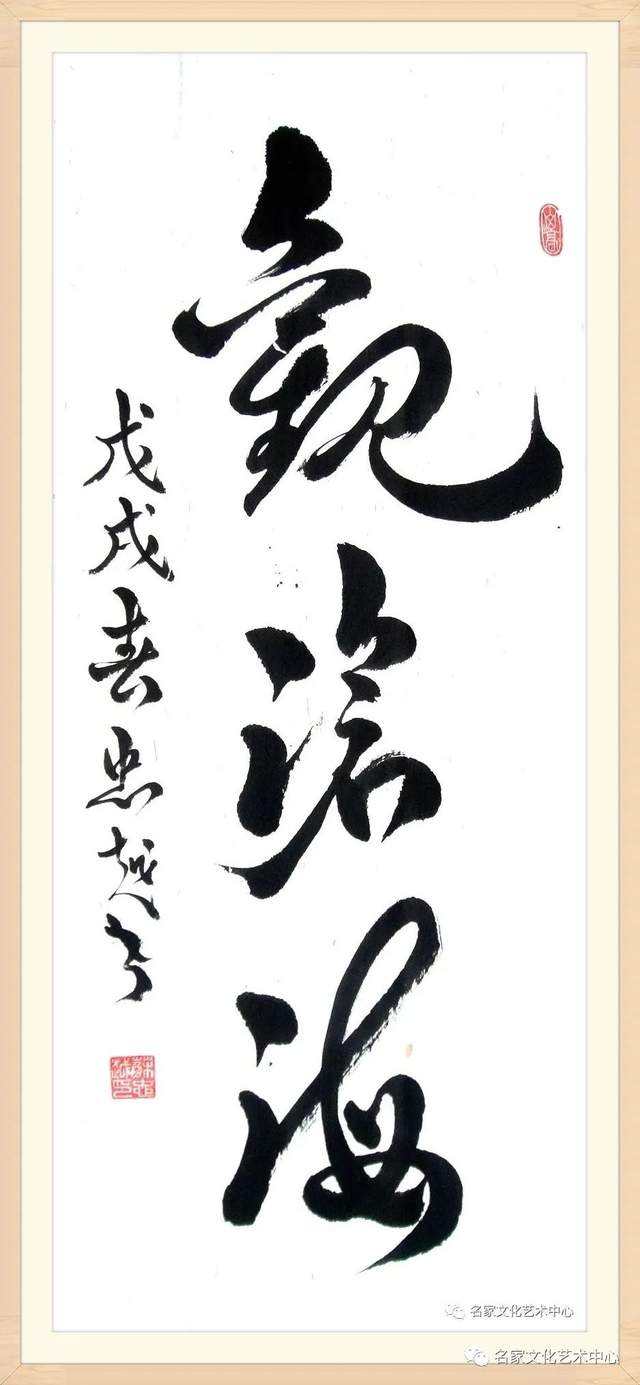 觀滄海
戊戌春忠越書
名家文化艺术中心
名家文化艺术中心